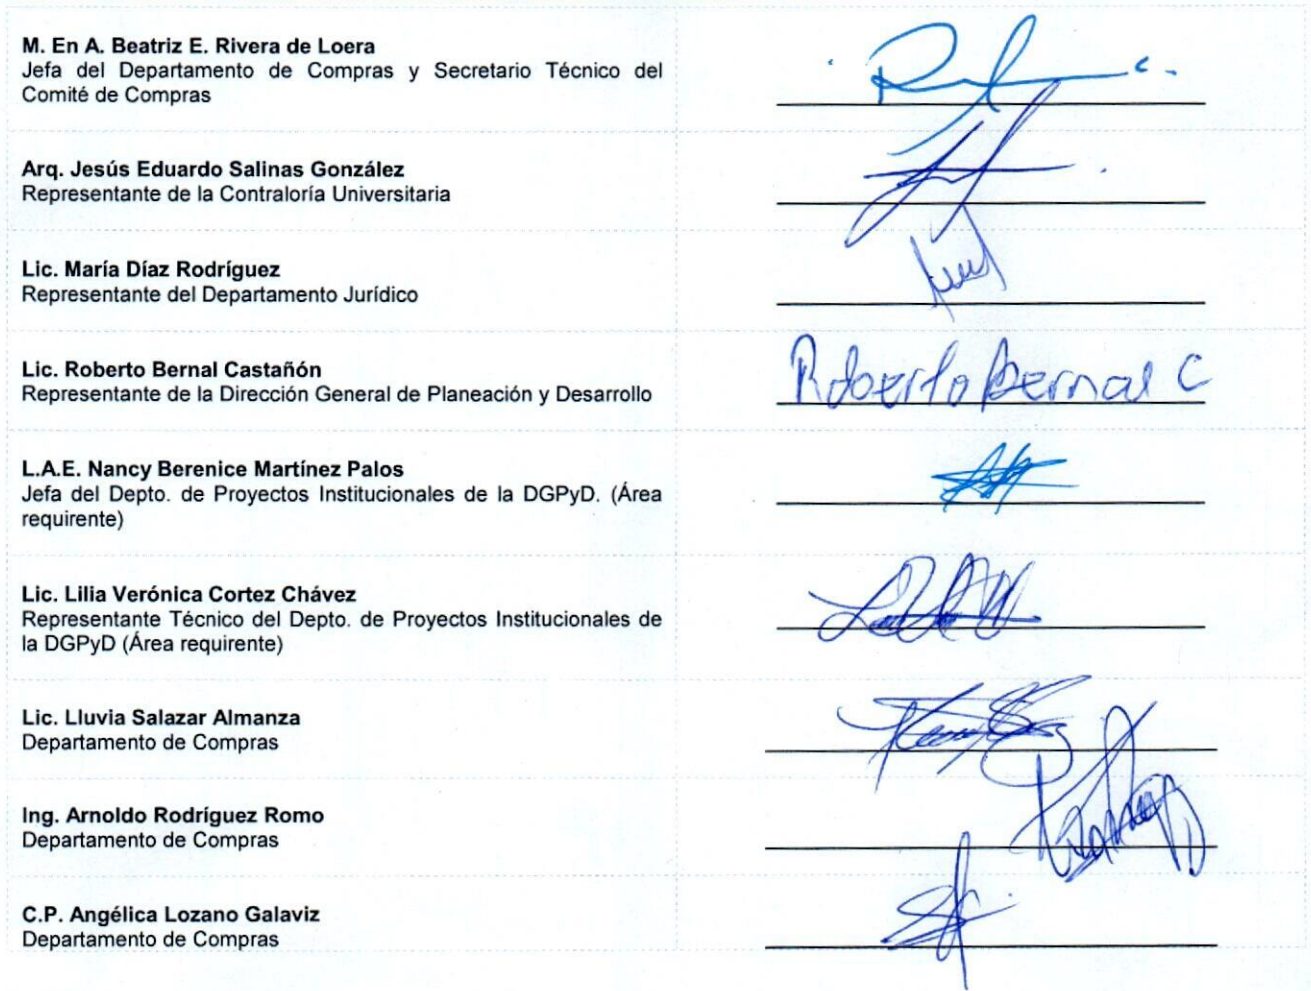 M. En A. Beatriz E. Rivera de Loera
Jefa del Departamento de Compras y Secretario Técnico del
Comité de Compras
Arq. Jesús Eduardo Salinas González
Representante de la Contraloría Universitaria
Lic. María Díaz Rodríguez
Representante del Departamento Jurídico
Lic. Roberto Bernal Castañón
Representante de la Dirección General de Planeación y Desarrollo
Roberto Bernal C
L.A.E. Nancy Berenice Martínez Palos
Jefa del Depto. de Proyectos Institucionales de la DGPyD. (Área
requirente)
Lic. Lilia Verónica Cortez Chávez
Representante Técnico del Depto. de Proyectos Institucionales de
la DGPyD (Área requirente)
Lic. Lluvia Salazar Almanza
Departamento de Compras
Ing. Arnoldo Rodríguez Romo
Departamento de Compras
C.P. Angélica Lozano Galaviz
Departamento de Compras